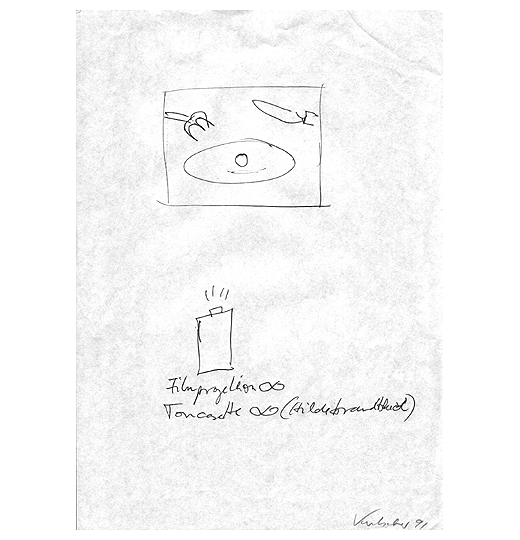 Filmprojektion ∞
Toncasette ∞ (Hildebrandtlied)
91